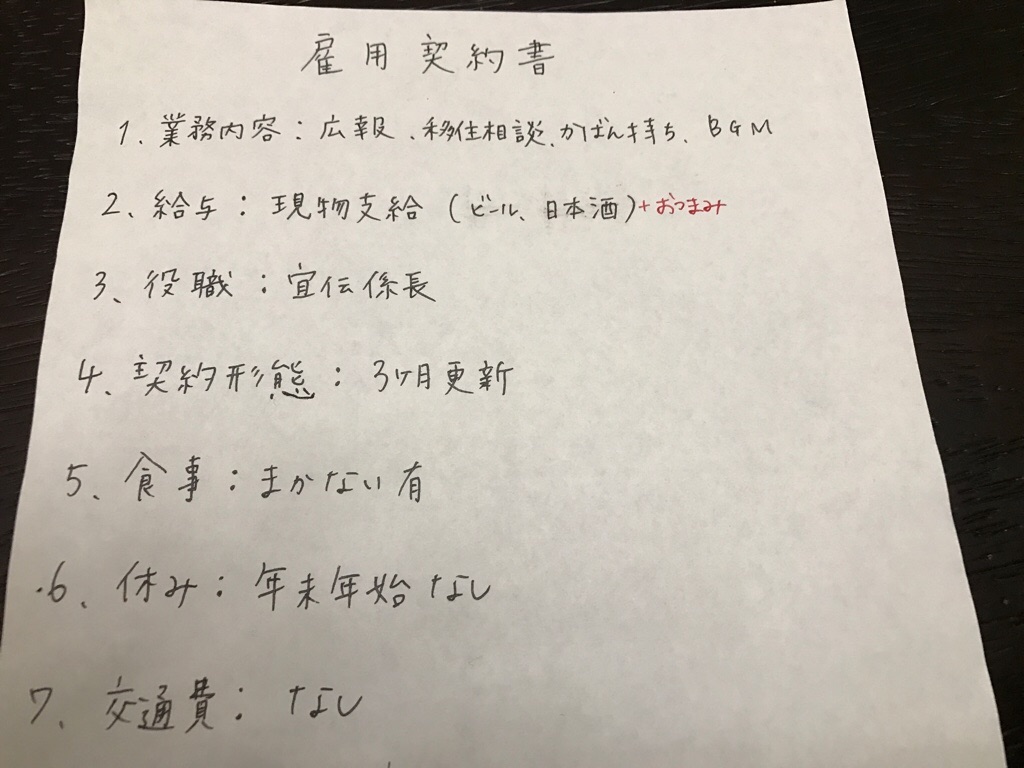 雇用契約書
1、業務内容：広報、移住相談、かばん持ち、BGM
2、給与：現物支給（ビール、日本酒）+おつまみ
3、役職：宣伝係長
4、契約形態：3ヶ月更新
5、食事：まかない有
6、休み：年末年始なし
7、交通費：なし